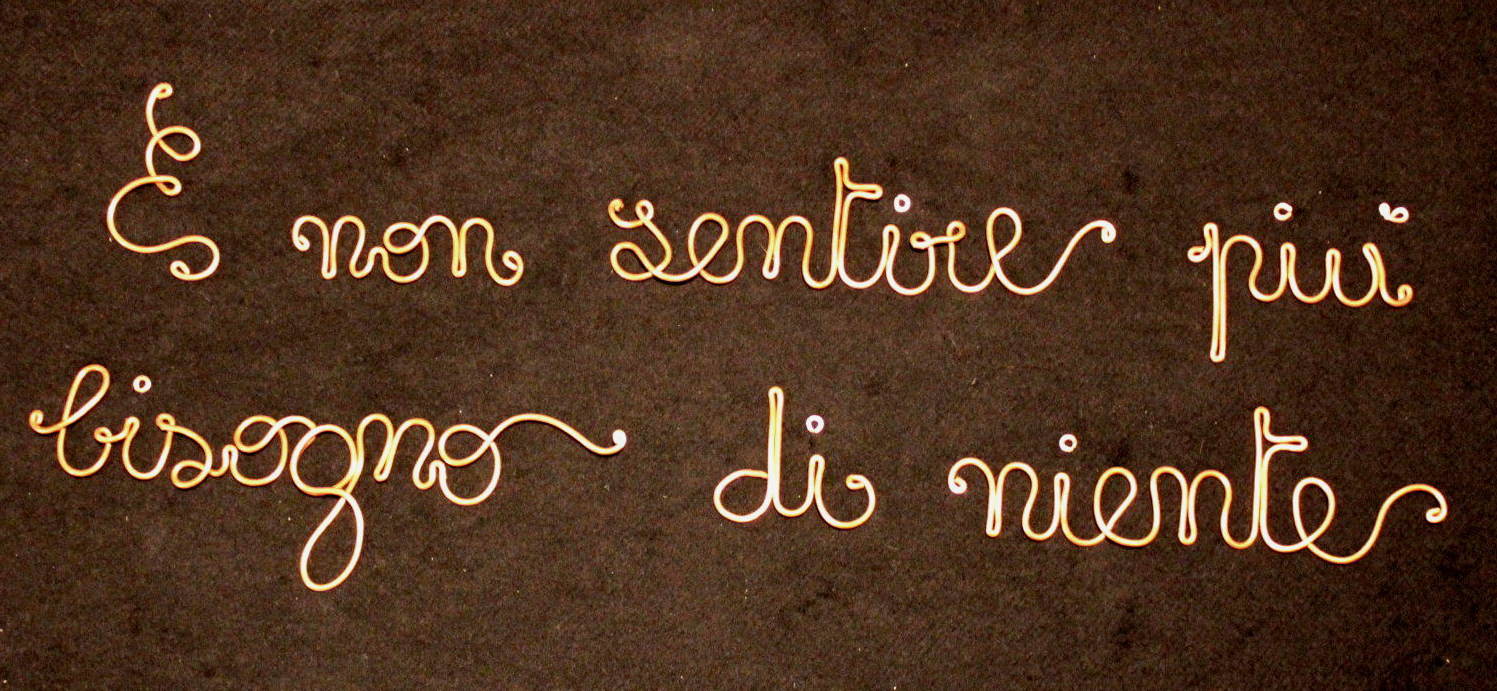 E non sentire più
bisogno di niente